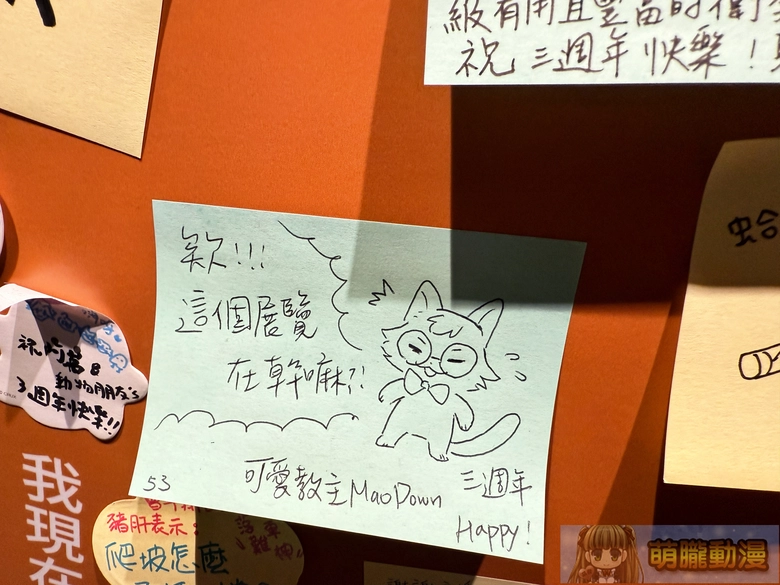 級有用且豐富的衛
祝 三週年 快樂！
欸!!!
這個展覽
在幹嘛?!
53
可愛教主MaoDown
三週年
Happy!
動物朋友's
3週年快樂!!
我現在
豬肝表示:
爬坡怎麼
蛤
萌朧動漫